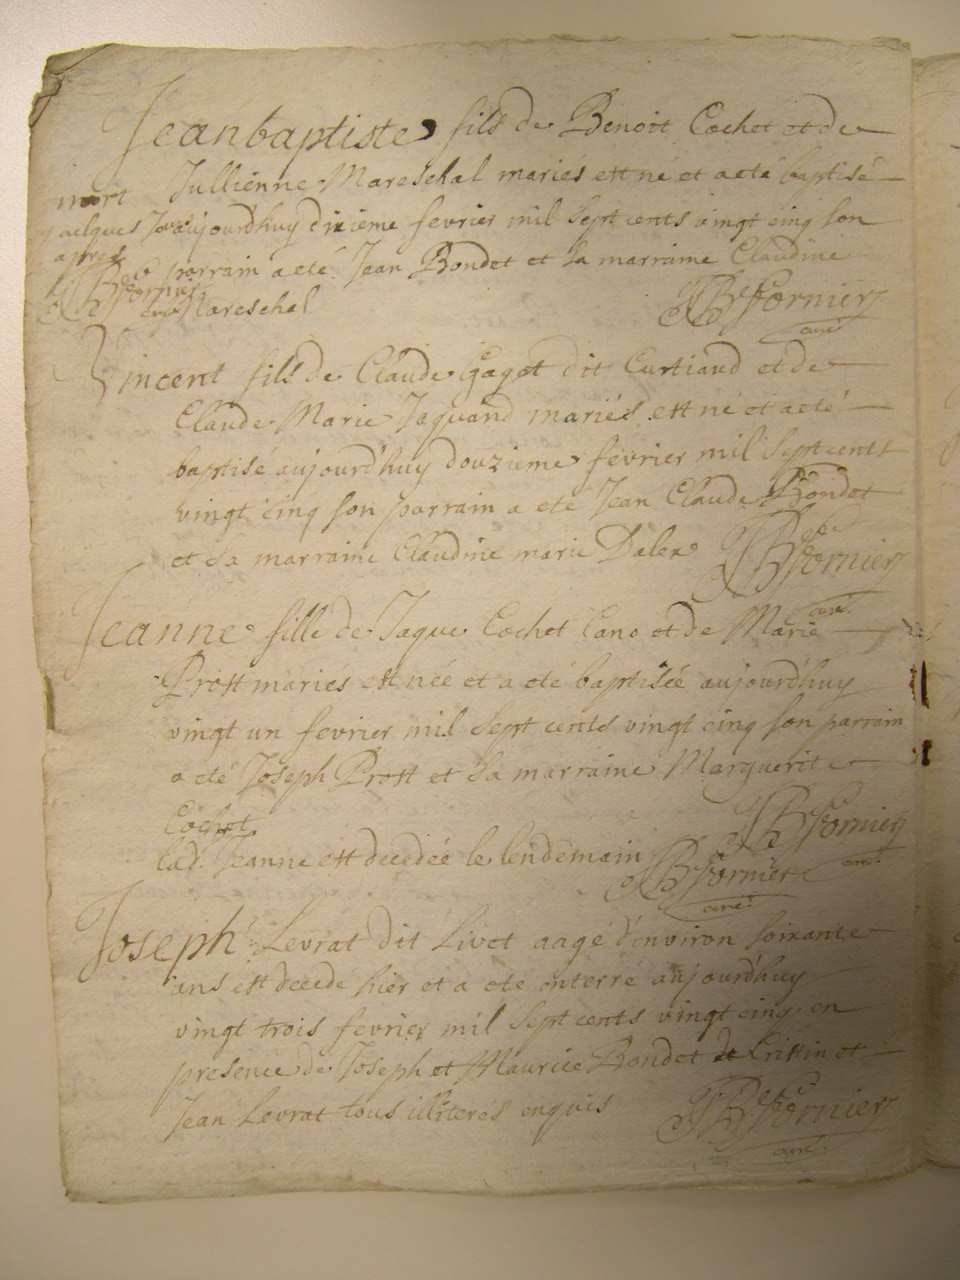 Jeanbaptiste fils de Benoit Cochet et de
Jullienne Mareschal mariés est né et a eté baptisé
mort
quelques Jours
apres
aujourd'huy dixieme fevrier mil sept cents vingt cinq son
parrain a eté Jean Bondet et sa marraine Claudine
Mareschal
Fornier
curé
Fornier
curé
Vincent fils de Claude Gagot dit Curtiaud et de
Claude Marie Jaquand mariés est né et a eté
baptisé aujourd'huy douzieme fevrier mil sept cents
vingt cinq son parrain a eté Jean Claude Bondet
et sa marraine Claudine marie Dalex
Fornier
curé
Jeanne fille de Jaque Cochet Cano et de Marie
Prost mariés est née et a eté baptisée aujourd'huy
vingt un fevrier mil sept cents vingt cinq son parrain
a eté Joseph Prost et sa marraine Marguerite
Cochet
Fornier
curé
lad. Jeanne est decedée le lendemain
Fornier
curé
Joseph Levrat dit Livet aagé d'environ soixante
ans est decede hier et a eté enterré aujourd'huy
vingt trois fevrier mil sept cents vingt cinq en
presence de Joseph et Maurice Bondet et
Jean Levrat tous illiteres enquis
Fornier
curé